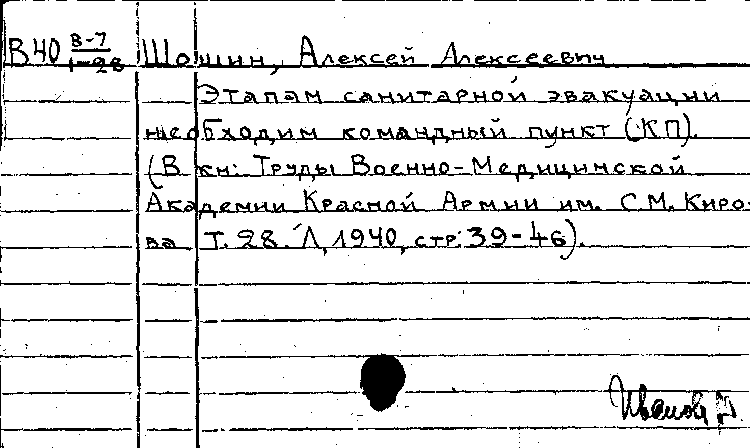 В40 В-7/1-28 Шошин, Алексей Алексеевич
Этапам санитарной эвакуации
необходим командный пункт (КП).
(В кн: Труды Военно-Медицинской
Академии Красной Армии им. С.М. Киро-
ва Т. 28. Л, 1940, стр: 39-46).
Иванов